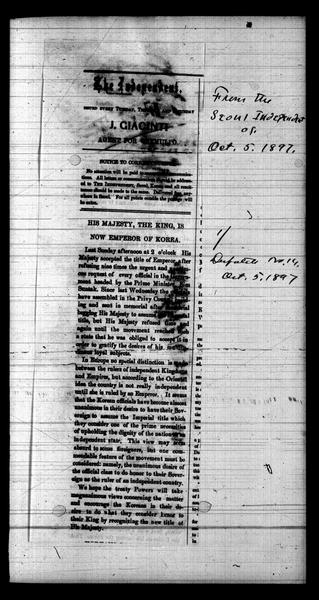 The Independent.
ISSUED EVERY TUESDAY,
J. GIACINTI
AGENT FOR CHEMULPO
NOTICE TO
No attention will be paid to
All letters or
to THE INDEPENDENT, Seoul, Korea and all
should be made to the same.
in Seoul. For all points outside the postage will
be extra.
HIS MAJESTY, THE KING, IS
NOW EMPEROR OF KOREA.
Last Sunday afternoon at 2 o'clock His
Majesty accepted the title of Emperor, after
refusing nine times the urgent and
request of the officials of the
ment headed by the Prime Minister,
Since last Wednesday the
have assembled in the Privy Council
ing and sent in memorial after
begging His Majesty to assume
title, but His Majesty refused
again until the movement reached
a state that he was obliged to accept it in
order to gratify the desires of his
those loyal subjects.
In Europe no special distinction is made
between the rulers of independent Kingdoms
and Empires, but according to the Oriental
idea the country is not really independent
until she is ruled by an Emperor. It seems
that the Korean officials have become almost
unanimous in their desire to have their Sov-
ereign to assume the Imperial title which
they consider one of the prime necessities
of upholding the dignity of the nation as an
independent state. This view may seem
absurd to some foreigners, but one com-
mendable feature of the movement must be
considered; namely, the unanimous desire of
the official class to do honor to their Sover-
eign as the ruler of an independent country.
We hope the treaty Powers will take
magnanimous views concerning the matter
and encourage the Koreans in their de-
sire to do what they consider honor to
their King by recognizing the new title of
His Majesty.
From the
Seoul Independent
of
Oct. 5. 1897.
1/
Dispatch No. 14,
Oct. 5, 1897